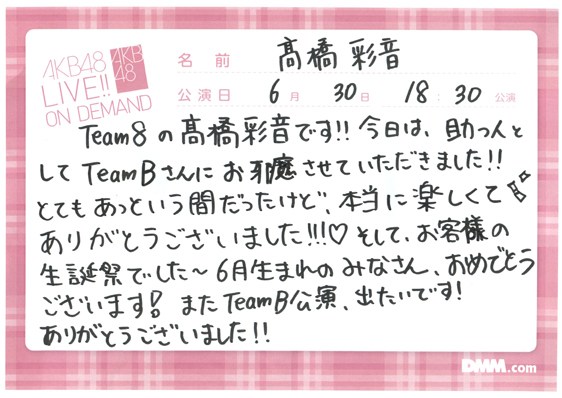 AKB48
LIVE!!
ON DEMAND
AKB
48
名前 髙橋彩音
公演日 6月 30日 18:30公演
Team8の髙橋彩音です!!今日は、助っ人と
してTeamBさんにお邪魔させていただきました!!
とてもあっという間だったけど、本当に楽しくて
ありがとうございました!!!♡そして、お客様の
生誕祭でした〜6月生まれのみなさん、おめでとう
ございます!またTeamB公演、出たいです!
ありがとうございました!!
DMM.com